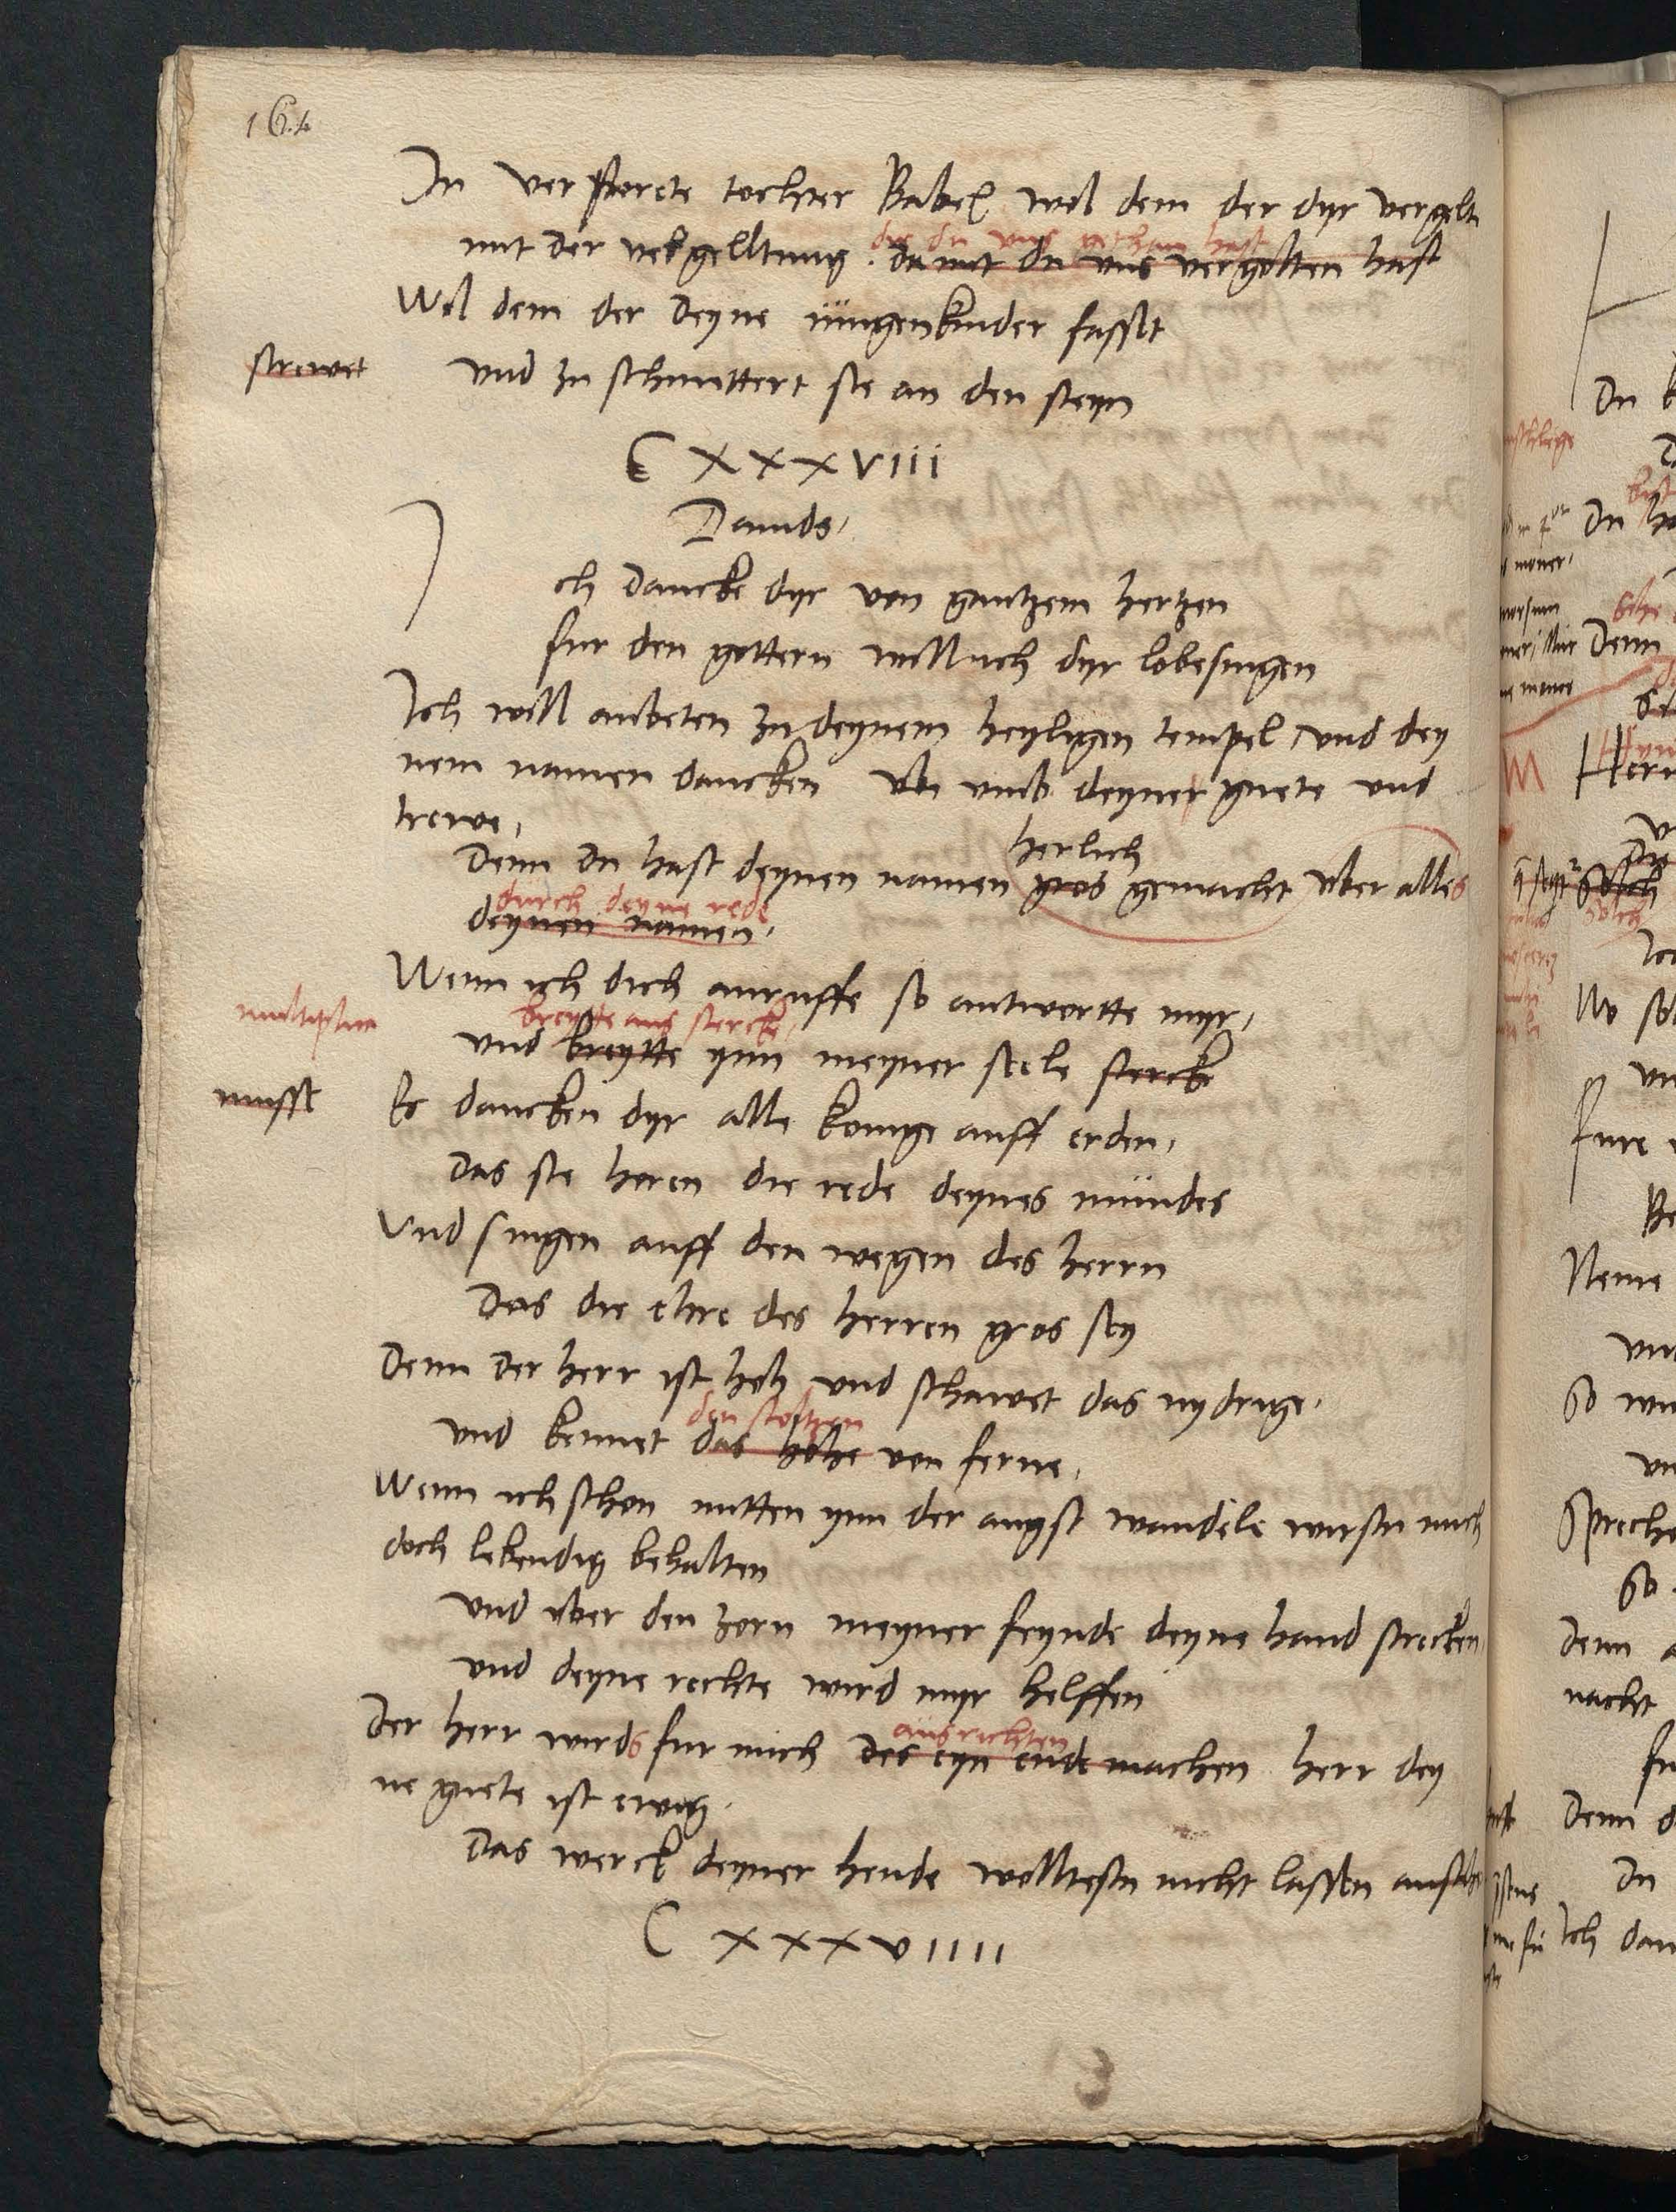 164
Du verstorete tochter Babel wol dem der dyr vergelt
die du uns gethan hast
mit der vergelltung damit du uns vergolten hast
Wol dem der deyne iungen kinder fasset
strewet und zu schmettert sie an den steyn
CXXXVIII
Dauids,
Ich dancke dyr von gantzem hertzen
fur den gottern will ich dyr lobesingen
Ich will anbeten zu deynem heyligen tempel und dey
nem namen dancken umb deyner guete und
trewe,
herlich
Denn du hast deynen namen gros gemacht uber alles
durch deyne rede
deynen namen,
Wenn ich dich anruffe so antwortte myr,
breytte aus stercke,
und breytte ynn meyner seele stercke
musst Es dancken dyr alle konige auff erden,
das sie horen die rede deynes mundes
Und singen auff den wegen des herrn
Das die ehre des herren gros sey
Denn der herr ist hoh und schawet das nydrige,
den stoltzen
und kennet das hohe von ferne,
Wenn ich schon mitten ynn der angst wandele wirstu mich
doch lebendig behalten
und uber den zorn meyner feynde deyne hand strecken,
und deyne rechte wird myr helffen
ausrichten
Der herr wirds fur mich des eyn ende machen herr dey
ne guete ist ewig,
Das werck deyner hende wolltestu nicht lassen
CXXXVIIII